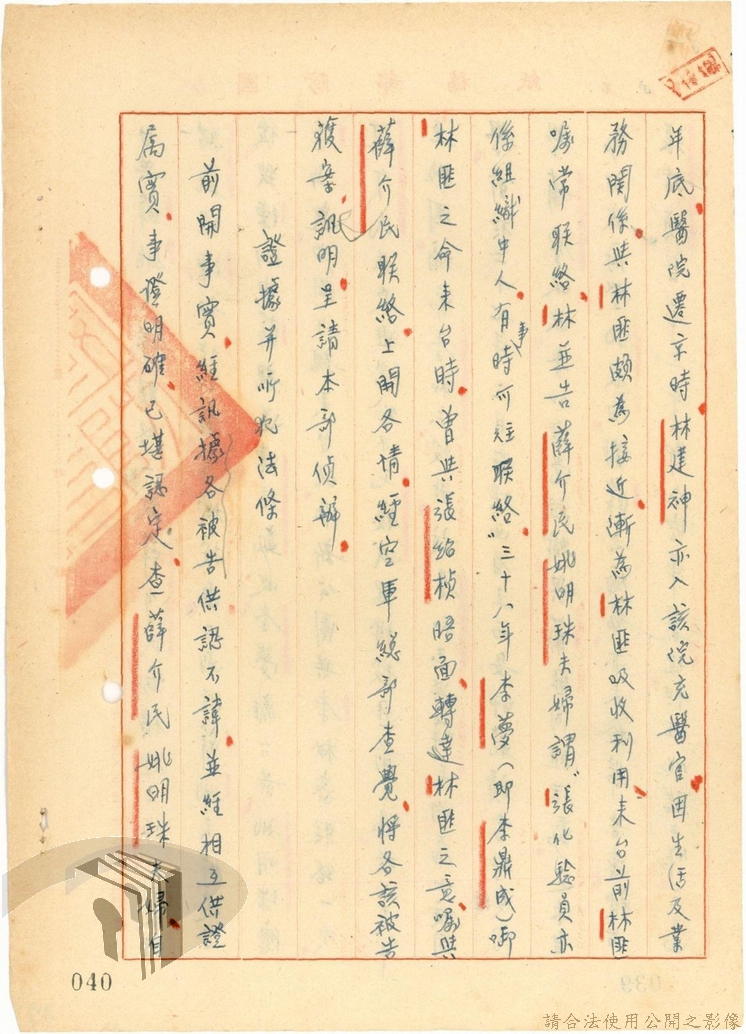 年底醫院遷京時林建神亦入該院充醫官因生活及業
務關係與林匪頗為接近漸為林匪吸收利用来台前林匪
囑常联絡林並告薛介民姚明珠夫婦謂“張化驗員亦
係組織中人有事時可往联絡”三十八年李夢（即李鼎成）啣
林匪之命来台時曾與張紹楨晤面轉達林匪之意囑與
薛介民联絡上開各情經空軍總部查覺將各該被告
獲案訊明呈請本部偵辦
證據并所犯法條
前開事實經訊據各被告供認不諱並經相互供證
屬實事證明確已堪認定查薛介民姚明珠夫婦自
040
請合法使用公開之影像